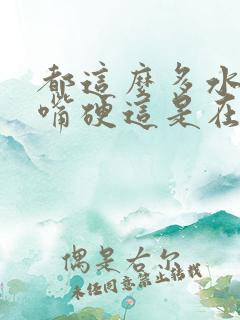 都這麼多水
嘴硬這是在
偶是右尔
未经同意禁止转载